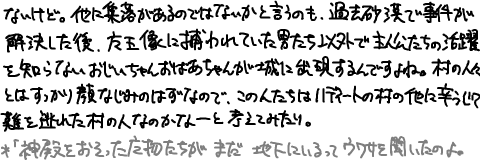 ないけど。他に集落があるのではないかと言うのも、過去砂漠で事件が
解決した後、女王像に捕われていた男たち以外で主人公たちの活躍
を知らないおじいちゃんおばあちゃんが城に出現するんですよね。村の人々
とはすっかり顔なじみのはずなので、この人たちはリディートの村の他に辛うじて
難を逃れた村の人なのかなーと考えてみたり。
*「神殿をおそった魔物たちが まだ 地下にいるって ウワサを聞いたのよ。